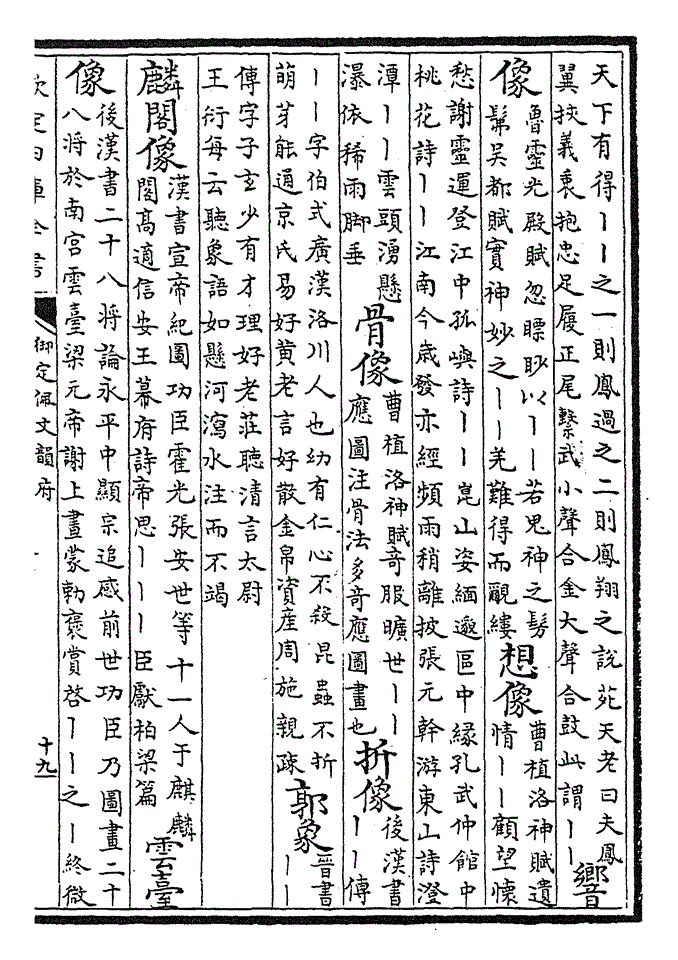 天下有得丨丨之一則鳳過之二則鳳翔之說苑天老曰夫鳳
翼挾義衷抱忠足履正尾繫武小聲合金大聲合鼓此謂丨丨
響
像
魯靈光殿賦忽瞟眇以丨丨若鬼神之髣
髴吳都賦實神妙之丨丨羌難得而覼縷
想像
曹植洛神賦遺
情丨丨顧望懷
愁謝靈運登江中孤嶼詩丨丨崑山姿緬邈區中緣孔武仲館中
桃花詩丨丨江南今歲發亦經頻雨稍離披張元幹游東山詩澄
潭丨丨雲頭湧懸
瀑依稀雨脚垂
骨像
曹植洛神賦竒服曠世丨丨
應圖注骨法多竒應圖畫也
折像
後漢書
丨丨傳
丨丨字伯式廣漢洛川人也幼有仁心不殺昆蟲不折
萌芽能通京氏易好黄老言好散金帛資産周施親疎
郭象
晉書
丨丨
傳字子玄少有才理好老莊聽清言太尉
王衍每云聽象語如懸河瀉水注而不竭
麟閣像
漢書宣帝紀圖功臣霍光張安世等十一人于麒麟
閣高適信安王幕府詩帝思丨丨丨臣獻柏梁篇
雲臺
像
後漢書二十八將論永平中顯宗追感前世功臣乃圖畫二十
八將於南宫雲臺梁元帝謝上畫蒙勅褒賞啓丨丨之丨終微
欽定四庫全書
御定佩文韻府
十九